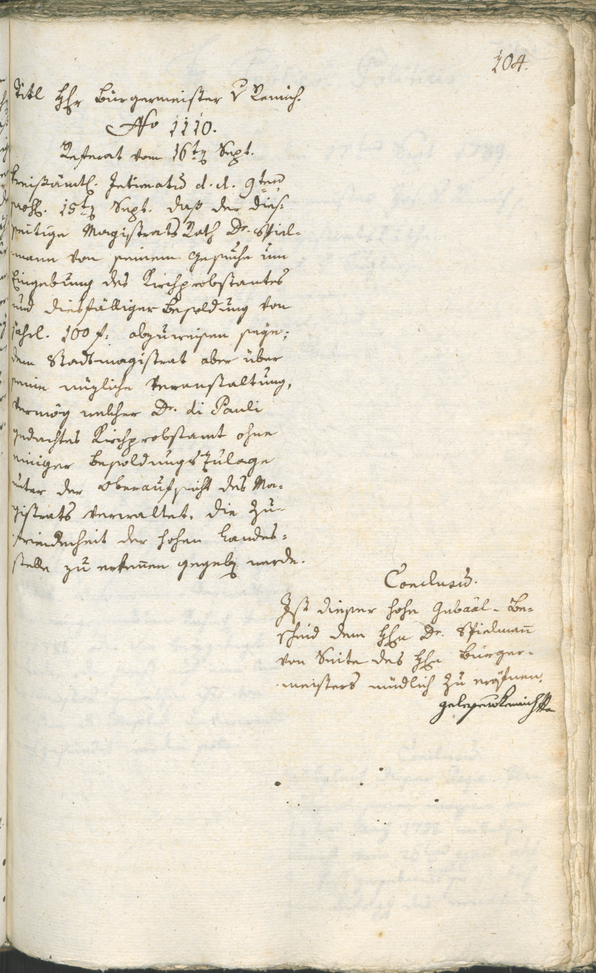 104.
Titl Hhr Bürgermeister v Remich.
No 1110.
Referat vom 16ten Sept.
Kreisämtl. Intimatum d. d. 9ten
15ten Sept. daß der dies-
seitige Magistrats Rath Dr. Spiel-
mann von seinem Gesuche um
Eingebung des Kirchprobstamtes
und diesfälliger Besoldung von
jährl. 100 f: abzuweisen seye;
dem Stadtmagistrat aber über
seine nüzliche Veranstaltung,
Vermög welcher Dr. di Pauli
gedachtes Kirchprobstamt ohne
einiger Besoldungs Zulage
unter der Oberaufsicht des Ma-
gistrats verwaltet, die Zu-
friedenheit der hohen Landes-
stelle zu erkennen gegeben werde.
Conclusum.
Ist dieser hohe Gubaal-Be-
scheid dem Hhn Dr. Spielmann
von Seite des Hhn Bürger-
meisters mündlich zu eröfnen.
gelesen Remich